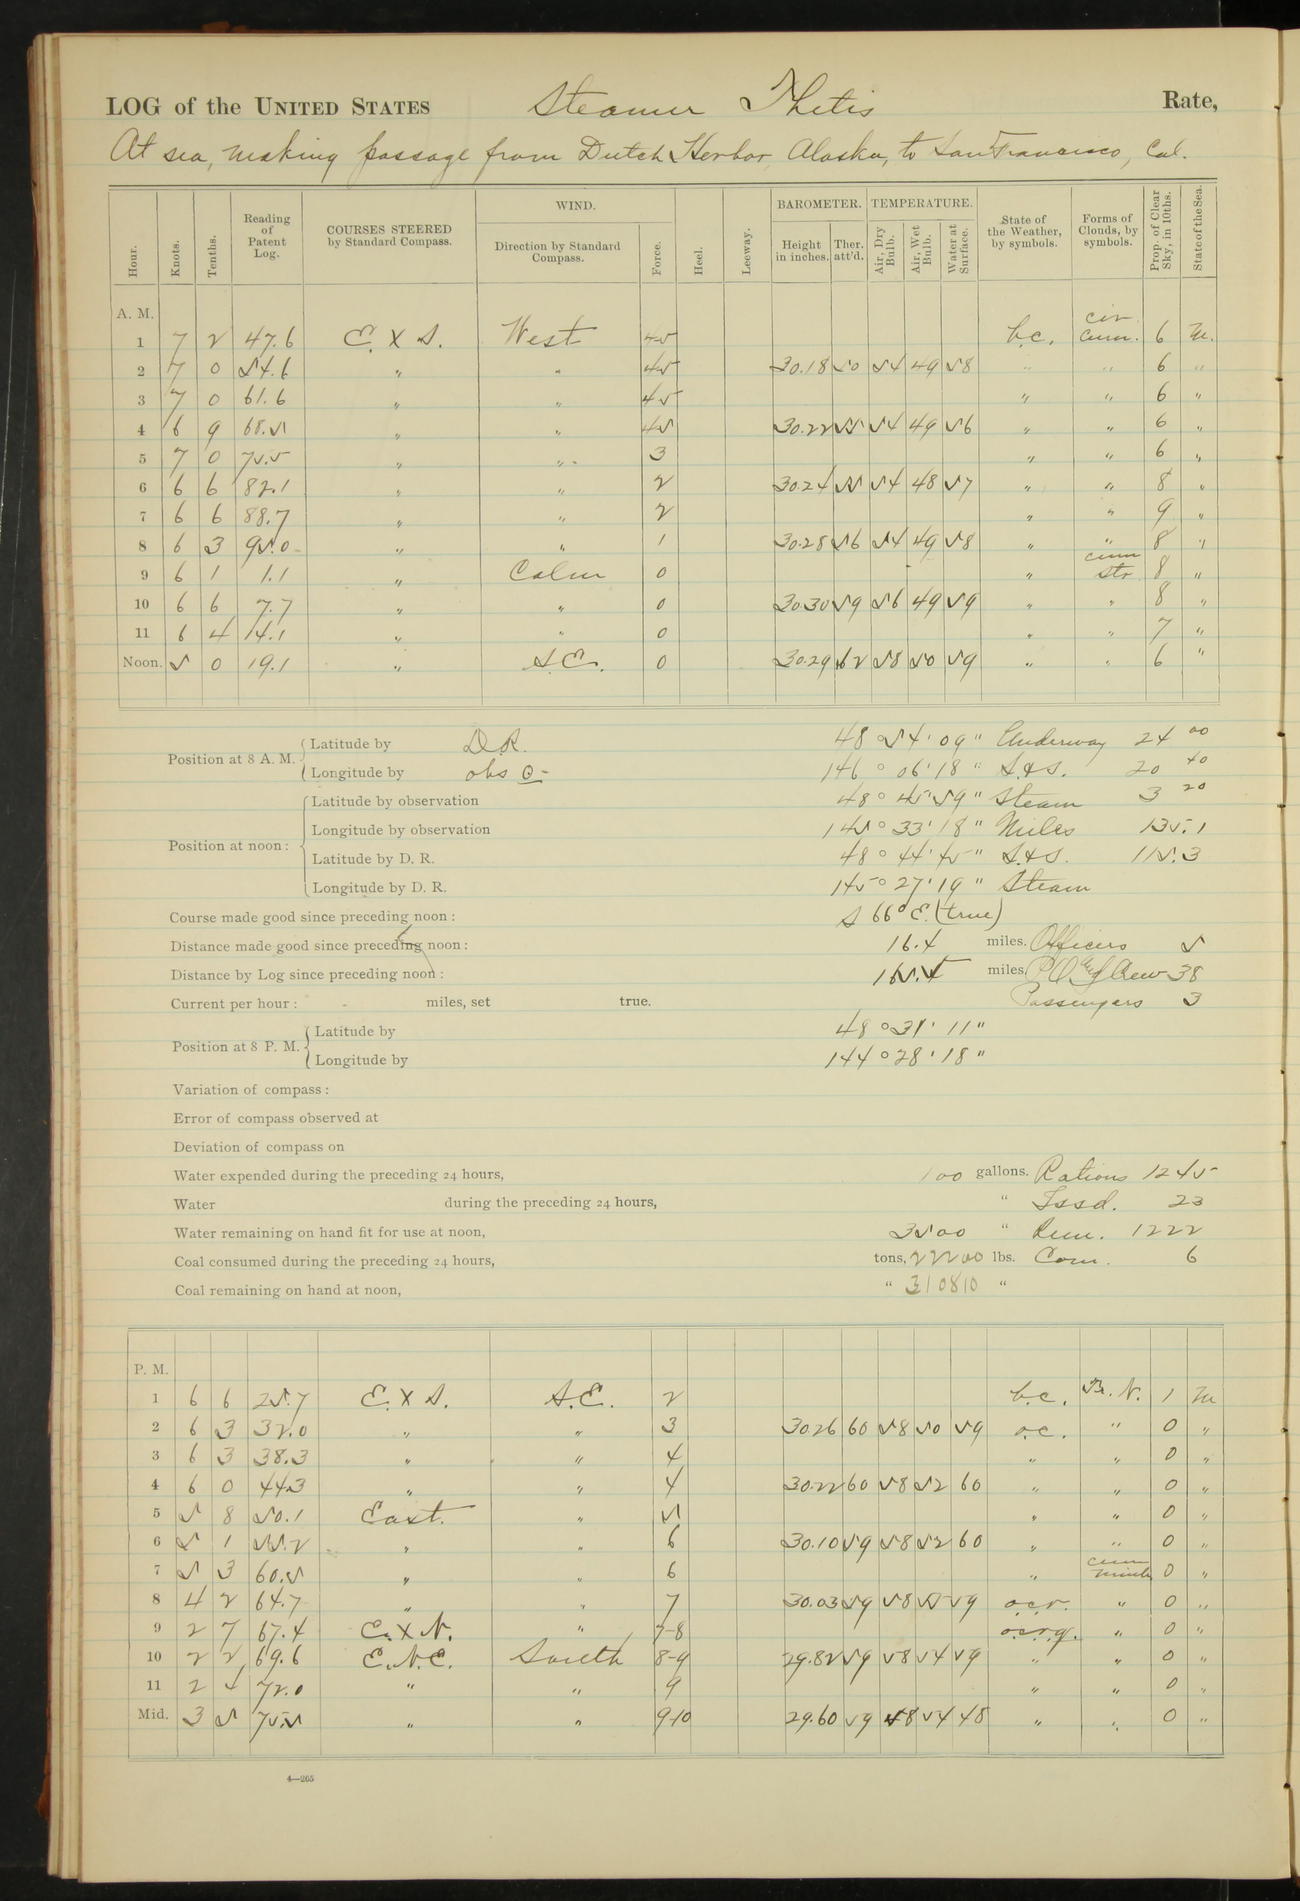 LOG of the UNITED STATES Steamer Thetis Rate,
At sea, making passage from Dutch Harbor, Alaska, to San Francisco, Cal.
Hour. Knots. Tenths. Reading of Patent Log. COURSES STEERED by Standard Compass. WIND. Direction by Standard Compass. Force. Heel. Leeway. BAROMETER. Height in inches. Ther. att'd. TEMPERATURE. Air, Dry Bulb. Air, Wet Bulb. Water at Surface. State of the Weather, by symbols. Forms of Clouds, by symbols. Prop. of Clear Sky, in 10ths. State of the Sea.
A. M.
1 7 2 47.6 E. X S. West 45 b.c. cir. cum. 6 M.
2 7 0 54.6 " " 45 30.18 50 54 49 58 " " 6 "
3 7 0 61.6 " " 45 " " 6 "
4 6 9 68.5 " " 45 30.22 55 54 49 56 " " 6 "
5 7 0 75.5 " " 3 " " 6 "
6 6 6 82.1 " " 2 30.24 55 54 48 57 " " 8 "
7 6 6 88.7 " " 2 " " 9 "
8 6 3 95.0 " " 1 30.28 56 54 49 58 " " 8 "
9 6 1 1.1 " Calm 0 " cum str. 8 "
10 6 6 7.7 " " 0 30.30 59 56 49 59 " " 8 "
11 6 4 14.1 " " 0 " " 7 "
Noon. 5 0 19.1 " S.E. 0 30.29 62 58 50 59 " " 6 "
Position at 8 A. M. Latitude by D.R. 48° 54' 09" Underway 24 00
Longitude by obs 146° 06' 18" S.&S. 20 40
Position at noon: Latitude by observation 48° 45' 59" Steam 3 20
Longitude by observation 145° 33' 18" Miles 135.1
Latitude by D. R. 48° 44' 45" S.&S. 115.3
Longitude by D. R. 145° 27' 19" Steam
Course made good since preceding noon: S 66° E. (true)
Distance made good since preceding noon: 16.4 miles. Officers 5
Distance by Log since preceding noon: 165.4 miles. P.O. and Crew 38
Current per hour: miles, set true. Passengers 3
Position at 8 P. M. Latitude by 48° 31' 11"
Longitude by 144° 28' 18"
Variation of compass:
Error of compass observed at
Deviation of compass on
Water expended during the preceding 24 hours, 100 gallons. Rations 1245
Water during the preceding 24 hours, " Issd. 23
Water remaining on hand fit for use at noon, 3500 " Rem. 1222
Coal consumed during the preceding 24 hours, tons, 22200 lbs. Com. 6
Coal remaining on hand at noon, " 310810 "
P. M.
1 6 6 25.7 E. X S. S.E. 2 b.c. N. 1 M
2 6 3 32.0 " " 3 30.26 60 58 50 59 o.c. " 0 "
3 6 3 38.3 " " 4 " " 0 "
4 6 0 44.3 " " 4 30.22 60 58 52 60 " " 0 "
5 5 8 50.1 East. " 5 " " 0 "
6 5 1 55.2 " " 6 30.10 59 58 52 60 " " 0 "
7 5 3 60.5 " " 6 " cum nimb 0 "
8 4 2 64.7 " " 7 30.03 59 58 55 59 o.c.r. " 0 "
9 2 7 67.4 E. X N. " 7-8 o.c.r.q. " 0 "
10 2 2 69.6 E.N.E. South 8-9 29.82 59 58 54 59 " " 0 "
11 2 4 72.0 " " 9 " " 0 "
Mid. 3 5 75.5 " " 9-10 29.60 59 58 54 48 " " 0 "
4—265